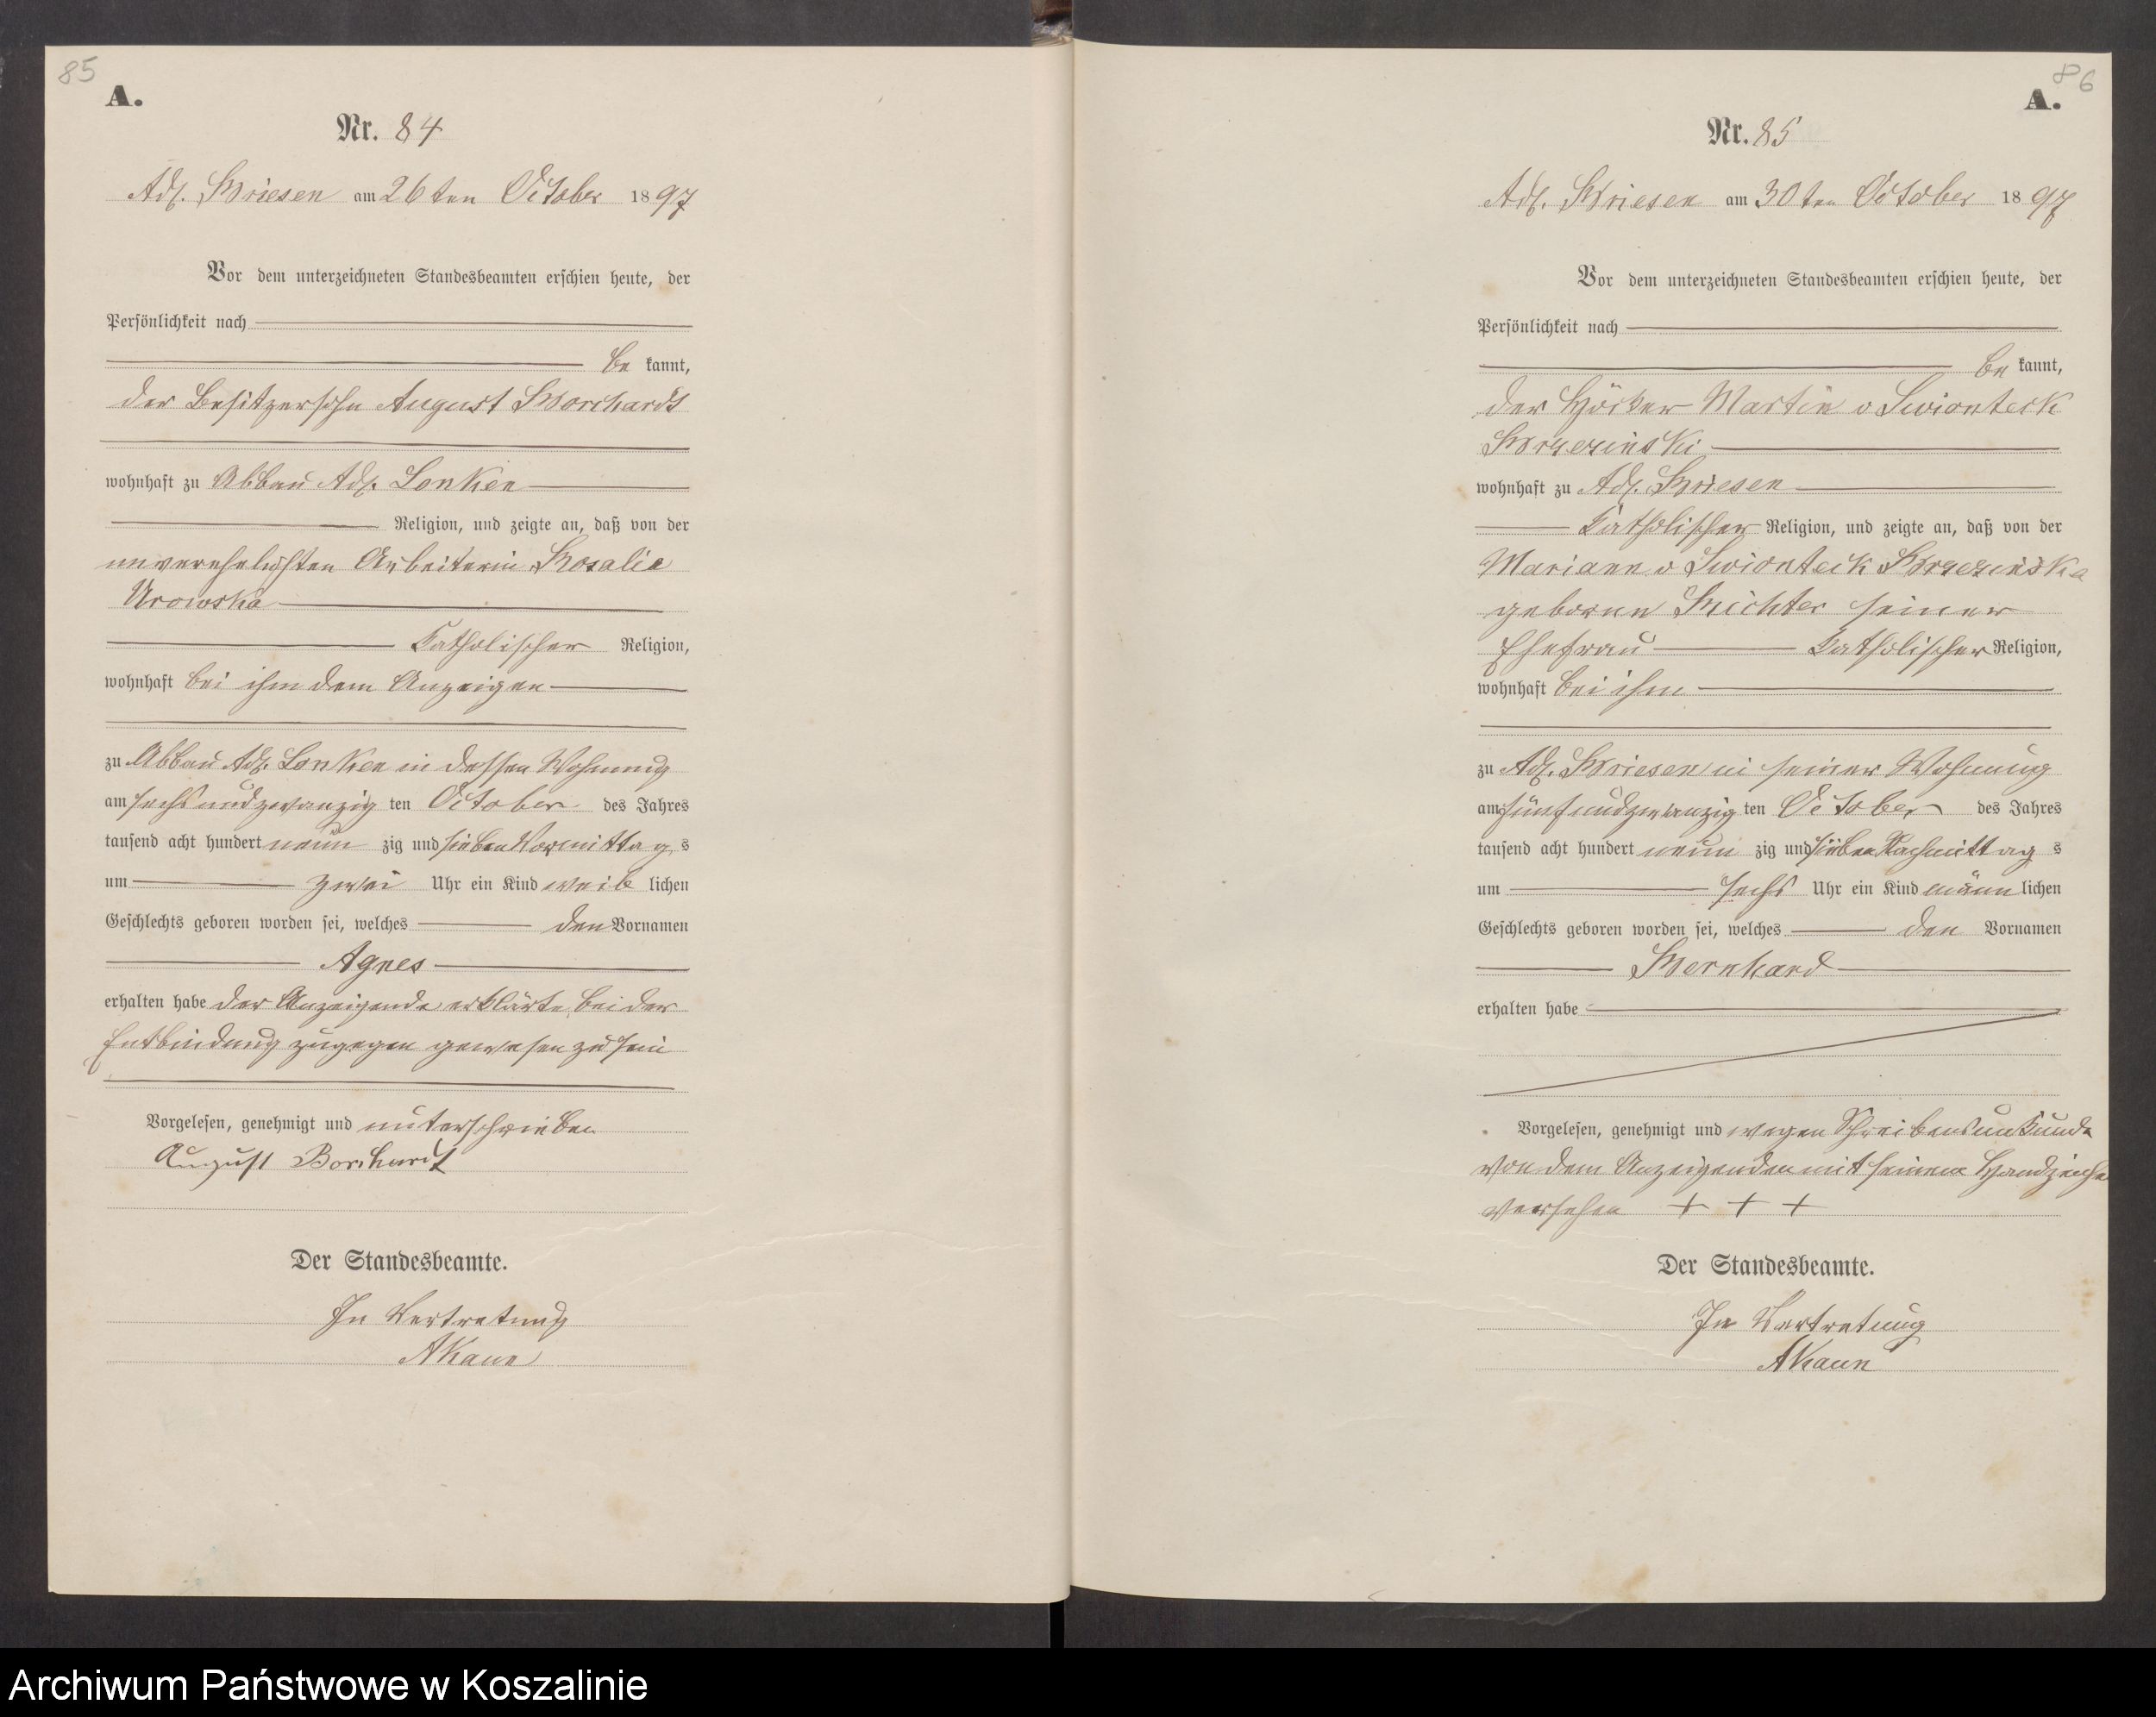 85
A.
Nr. 84
Adl. Briesen am 26ten October 1897
Vor dem unterzeichneten Standesbeamten erschien heute, der
Persönlichkeit nach
be kannt,
der Besitzersohn August Borchardt
wohnhaft zu Abbau Adl. Lonken
Religion, und zeigte an, daß von der
unverehelichten Arbeiterin Rosalie
Urowska
Katholischer Religion,
wohnhaft bei ihm dem Anzeigen
zu Abbau Adl. Lonken in dessen Wohnung
am sechsundzwanzig ten October des Jahres
tausend acht hundert neun zig und sieben Vormittag s
um zwei Uhr ein Kind weib lichen
Geschlechts geboren worden sei, welches den Vornamen
Agnes
erhalten habe der Anzeigende erklärte, bei der
Entbindung zugegen gewesen zu sein
Vorgelesen, genehmigt und unterschrieben
August Borchardt
Der Standesbeamte.
In Vertretung
AKaun
86
A.
Nr. 85
Adl. Briesen am 30ten October 1897
Vor dem unterzeichneten Standesbeamten erschien heute, der
Persönlichkeit nach
be kannt,
der Höcker Martin v Swionteck
Brzezinski
wohnhaft zu Adl. Briesen
Katholischer Religion, und zeigte an, daß von der
Mariann v Swionteck Brzezinska
geborne Richter seiner
Ehefrau Katholischer Religion,
wohnhaft bei ihm
zu Adl. Briesen in seiner Wohnung
am fünfundzwanzig ten October des Jahres
tausend acht hundert neun zig und sieben Nachmittag s
um sechs Uhr ein Kind männ lichen
Geschlechts geboren worden sei, welches den Vornamen
Bernhard
erhalten habe
Vorgelesen, genehmigt und wegen Schreibensunkunde
von dem Anzeigenden mit seinem Handzeichen
versehen + + +
Der Standesbeamte.
In Vertretung
AKaun
Archiwum Państwowe w Koszalinie